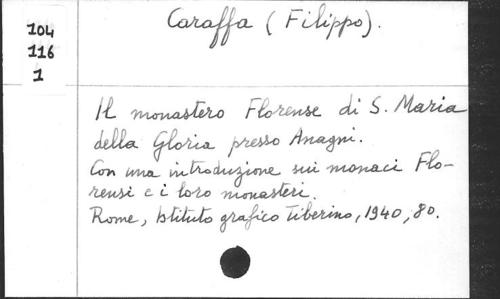 Caraffa (Filippo).
104
116
1
Il monastero Florense di S. Maria
della Gloria presso Anagni.
Con una introduzione sui monaci Flo-
rensi e i loro monasteri.
Rome, Istituto grafico Tiberino, 1940, 80.